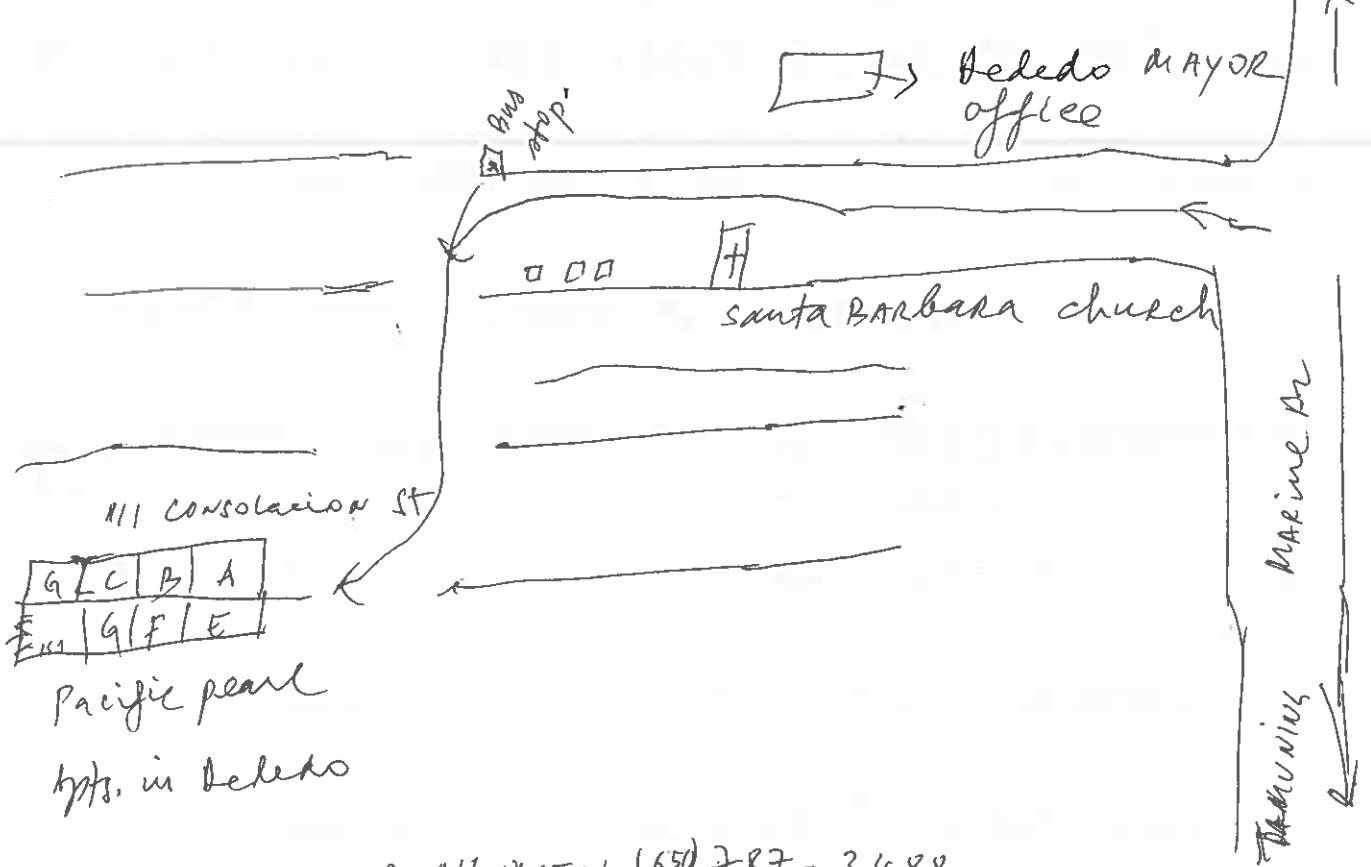 Dededo MAYOR
office
Bus
stop
Santa BARbara church
Marine Dr
111 Consolacion St
G C B A
G F E
Pacific pearl
Apts. in Dededo
TAMUNING